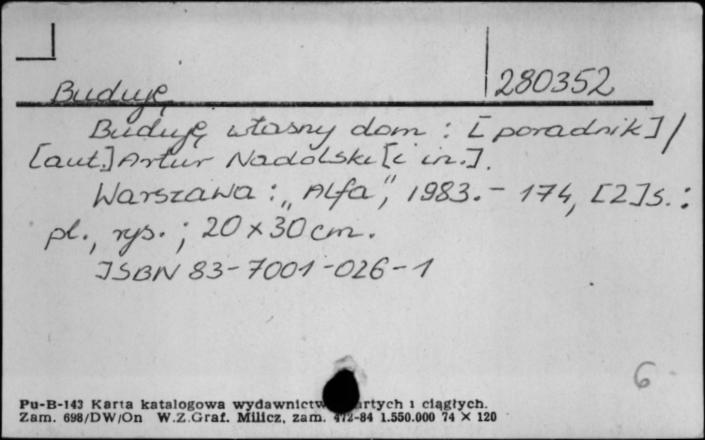 280352
Buduję
Buduję własny dom : [poradnik] /
[aut.] Artur Nadolski [i in.].
Warszawa : „Alfa”, 1983. - 174, [2] s. :
pl., rys. ; 20 x 30 cm.
ISBN 83-7001-026-1
6
Pu-B-143 Karta katalogowa wydawnictw ciągłych.
Zam. 698/DW/On W.Z.Graf. Milicz, zam. 472-84 1.550.000 74 X 120